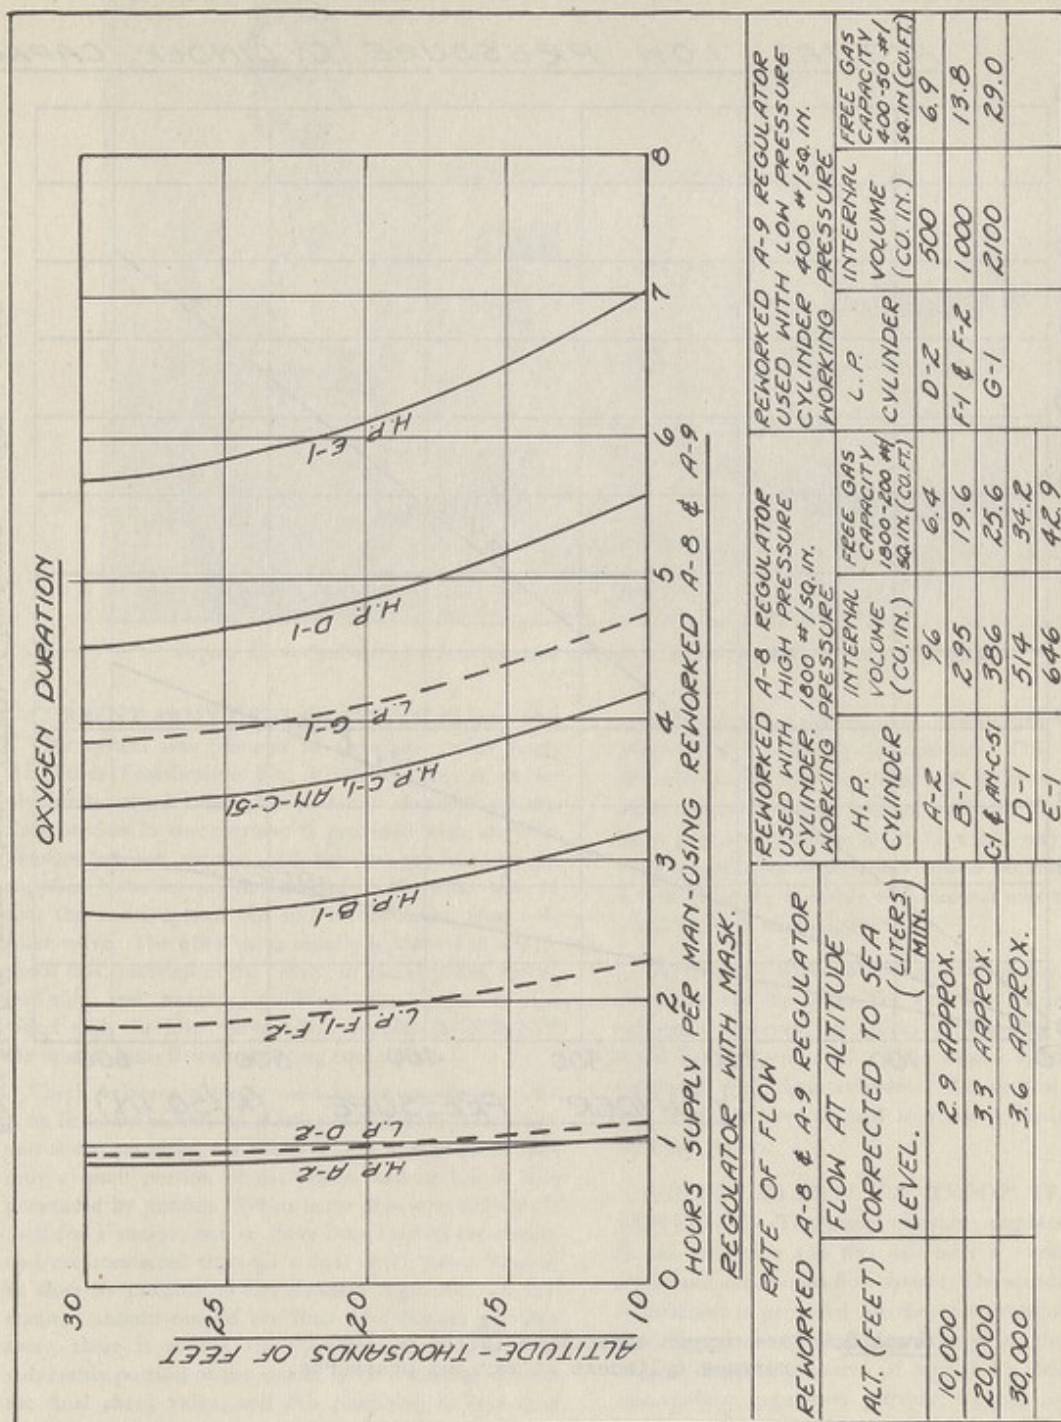 OXYGEN DURATION
ALTITUDE - THOUSANDS OF FEET
30
25
20
15
10
H.P. A-2
L.P. D-2
L.P. F-1, F-2
H.P. B-1
H.P. C-1, AN-C-51
L.P. G-1
H.P. D-1
H.P. E-1
0 1 2 3 4 5 6 7 8
HOURS SUPPLY PER MAN-USING REWORKED A-8 & A-9
REGULATOR WITH MASK.
RATE OF FLOW
REWORKED A-8 & A-9 REGULATOR
ALT. (FEET)
FLOW AT ALTITUDE
CORRECTED TO SEA
LEVEL. (LITERS)
MIN.
10,000 2.9 APPROX.
20,000 3.3 APPROX.
30,000 3.6 APPROX.
REWORKED A-8 REGULATOR
USED WITH HIGH PRESSURE
CYLINDER. 1800 #/SQ. IN.
WORKING PRESSURE
H. P.
CYLINDER
INTERNAL
VOLUME
(CU. IN.)
FREE GAS
CAPACITY
1800-200 #/
SQ.IN. (CU.FT.)
A-2 96 6.4
B-1 295 19.6
C1 & AN-C-51 386 25.6
D-1 514 34.2
E-1 646 42.9
REWORKED A-9 REGULATOR
USED WITH LOW PRESSURE
CYLINDER 400 #/SQ. IN.
WORKING PRESSURE
L. P.
CYLINDER
INTERNAL
VOLUME
(CU. IN.)
FREE GAS
CAPACITY
400-50 #/
SQ.IN (CU.FT.)
D-2 500 6.9
F-1 & F-2 1000 13.8
G-1 2100 29.0